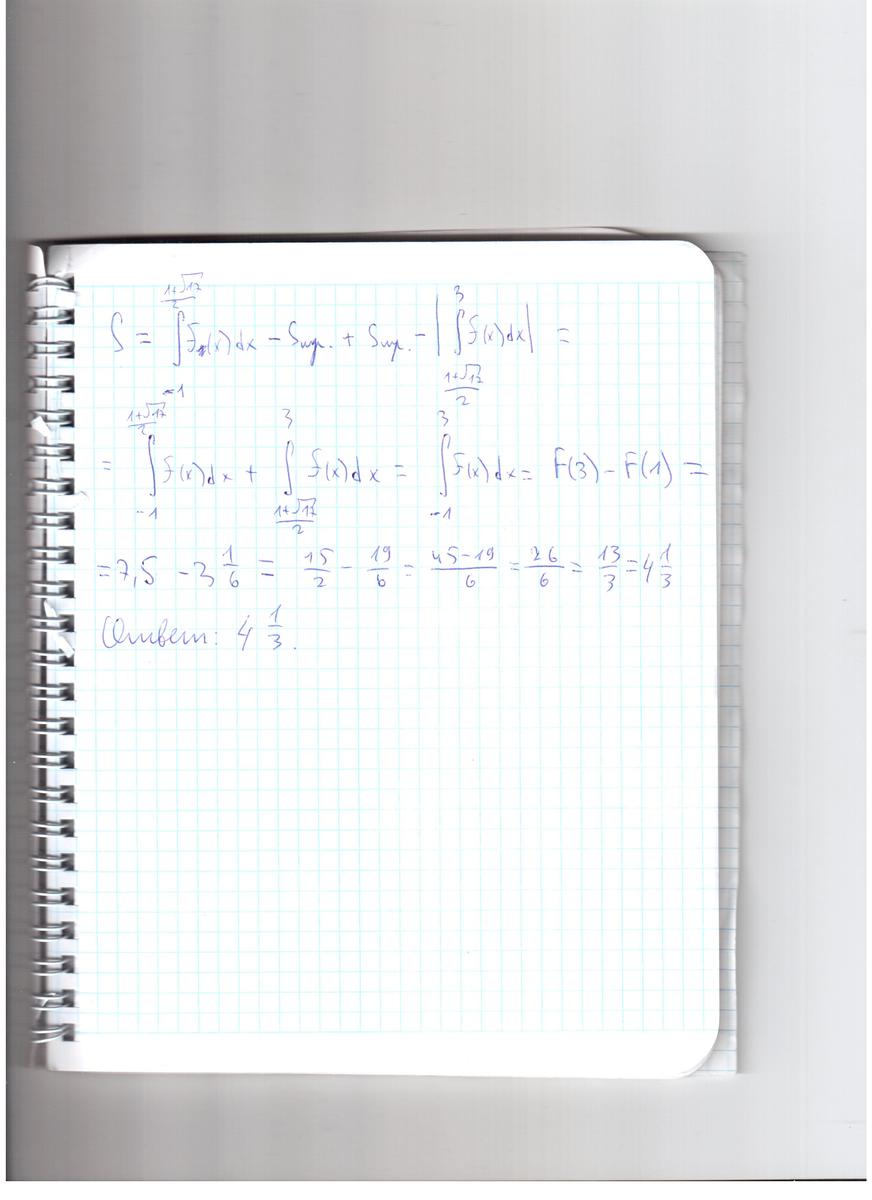 S = ∫_{-1}^{(1+√17)/2} f(x)dx - Sкр. + Sкр. - |∫_{(1+√17)/2}^{3} f(x)dx| =
= ∫_{-1}^{(1+√17)/2} f(x)dx + ∫_{(1+√17)/2}^{3} f(x)dx = ∫_{-1}^{3} f(x)dx = F(3) - F(1) =
= 7,5 - 3 1/6 = 15/2 - 19/6 = (45-19)/6 = 26/6 = 13/3 = 4 1/3
Ответ: 4 1/3.